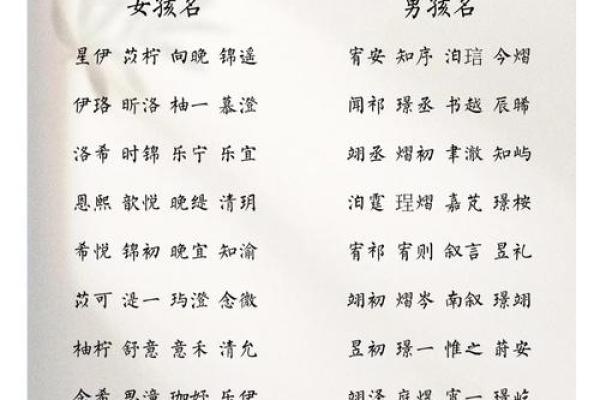 女孩名
星伊 苡柠 向晚 锦遥
伊珞 昕洛 柚一 慕澄
洛希 时锦 乐宁 乐宜
恩熙 歆悦 晚缇 清玥
希悦 锦初 晚宜 知渝
苡可 湜一 玙澄 念微
柚柠 舒意 意禾 清允
男孩名
宥安 知序 洎琂 今熠
闻祁 璟丞 书越 辰晞
翊丞 熠初 聿澈 知屿
洎霆 珵熠 嘉芃 璟桉
宥祁 宥则 叙言 昱礼
翊初 熠岑 南叙 璟翊
昱初 璟一 惟之 蔚安